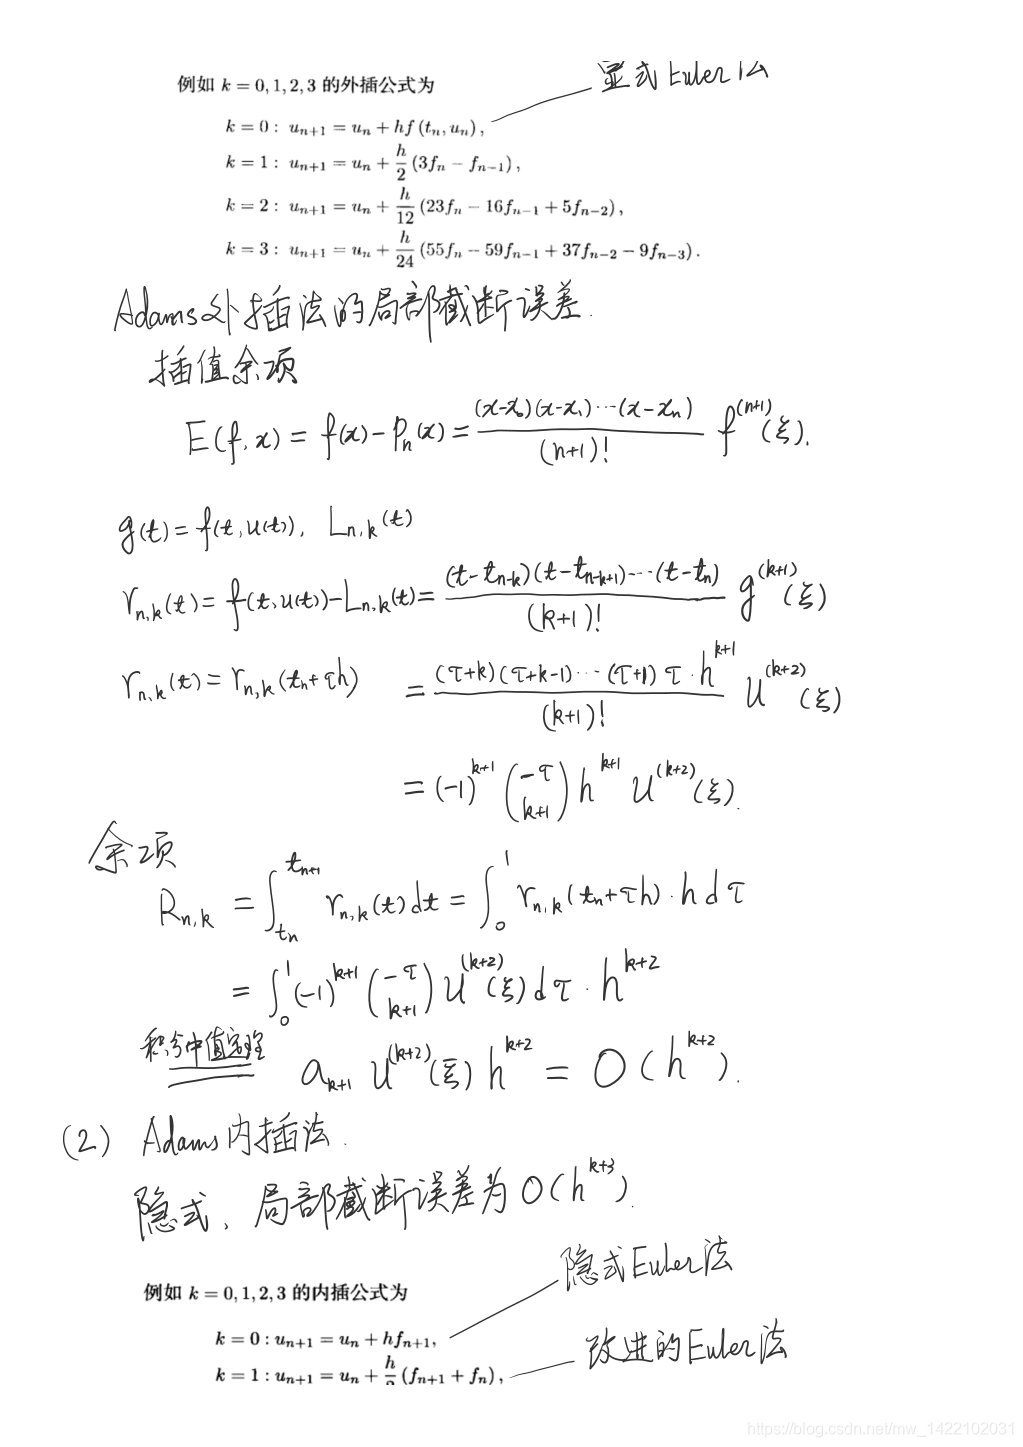 例如 k = 0, 1, 2, 3 的外插公式为
显式Euler公
k = 0 : u_{n+1} = u_n + hf (t_n, u_n) ,
k = 1 : u_{n+1} = u_n + \frac{h}{2} (3f_n − f_{n−1}) ,
k = 2 : u_{n+1} = u_n + \frac{h}{12} (23f_n − 16f_{n−1} + 5f_{n−2}) ,
k = 3 : u_{n+1} = u_n + \frac{h}{24} (55f_n − 59f_{n−1} + 37f_{n−2} − 9f_{n−3}) .
Adams外插法的局部截断误差.
插值余项
E(f, x) = f(x) − P_n(x) = \frac{(x−x_0)(x−x_1)···(x−x_n)}{(n+1)!} f^{(n+1)}(ξ).
g(t) = f(t, u(t)), L_{n,k}(t)
r_{n,k}(t) = f(t, u(t)) − L_{n,k}(t) = \frac{(t−t_{n−k})(t−t_{n−k+1})···(t−t_n)}{(k+1)!} g^{(k+1)}(ξ)
r_{n,k}(t) = r_{n,k}(t_n+τh) = \frac{(τ+k)(τ+k−1)···(τ+1)τ·h^{k+1}}{(k+1)!} u^{(k+2)}(ξ)
= (−1)^{k+1} \binom{−τ}{k+1} h^{k+1} u^{(k+2)}(ξ).
余项
R_{n,k} = ∫_{t_n}^{t_{n+1}} r_{n,k}(t)dt = ∫_0^1 r_{n,k}(t_n+τh)·h dτ
= ∫_0^1 (−1)^{k+1} \binom{−τ}{k+1} u^{(k+2)}(ξ) dτ · h^{k+2}
积分中值定理 a_{k+1} u^{(k+2)}(ξ) h^{k+2} = O(h^{k+2}).
(2) Adams内插法.
隐式, 局部截断误差为O(h^{k+3}).
隐式Euler法
例如 k = 0, 1, 2, 3 的内插公式为
k = 0 : u_{n+1} = u_n + hf_{n+1},
改进的Euler法
k = 1 : u_{n+1} = u_n + \frac{h}{2} (f_{n+1} + f_n) ,
https://blog.csdn.net/mw_1422102031